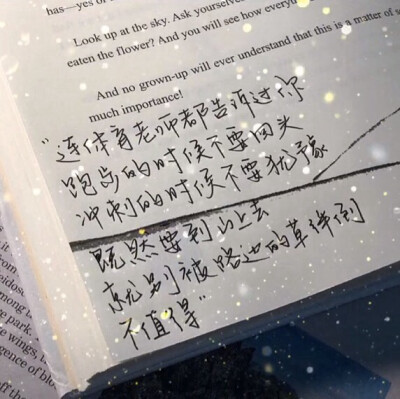 has—yes or
Look up at the sky. Ask yourselves
eaten the flower? And you will see how everyt
And no grown-up will ever understand that this is a matter of s
much importance!
“连体育老师都告诉过你
跑步的时候不要回头
冲刺的时候不要犹豫
既然要到山上去
就别被路边的草绊倒
不值得”